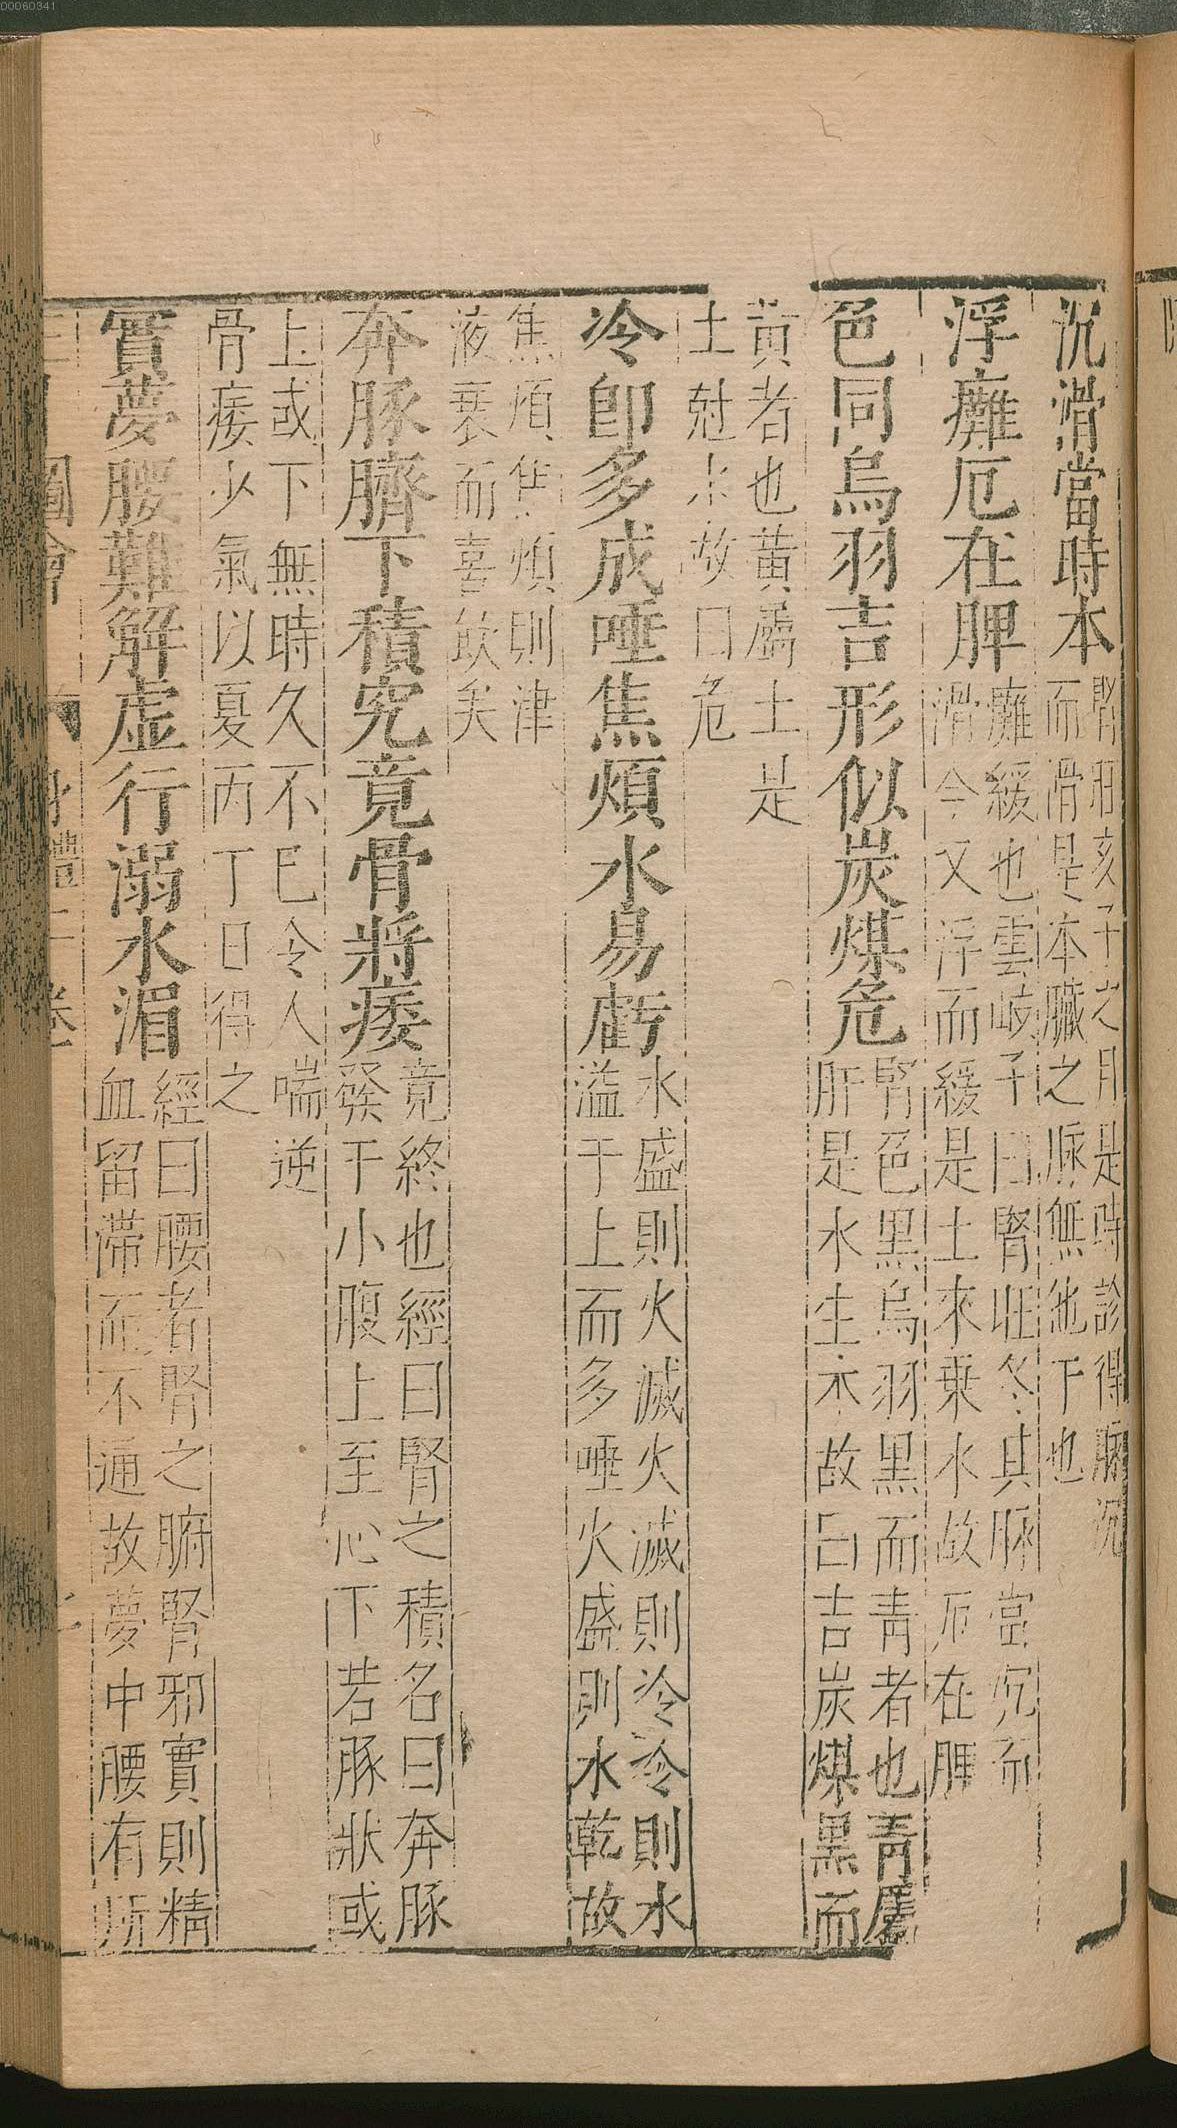 00060341
沉滑當時本腎旺亥子之月是時診得脈沉
而滑是本臟之脈無他下也
浮癱厄在脾癱緩也雲岐子曰腎旺冬其脈當沉而
滑今又浮而緩是土來乗水故厄在脾
色同烏羽吉形似炭煤危腎色黒烏羽黒而青者也青屬
肝是水生木故曰吉炭煤黒而
黃者也黃屬土是
土尅水故曰危
冷即多成唾焦煩水易虧水盛則火滅火滅則冷冷則水
溢于上而多唾火盛則水乾故
焦煩焦煩則津
液衰而喜飲矣
奔豚臍下積究竟骨將痿竟終也經曰腎之積名曰奔豚
發于小腹上至心下若豚狀或
上或下無時久不已令人喘逆
骨痿少氣以夏丙丁日得之
實夢腰難解虛行溺水湄經曰腰者腎之腑腎邪實則精
血留滯而不通故夢中腰有所
圖會 身體二卷